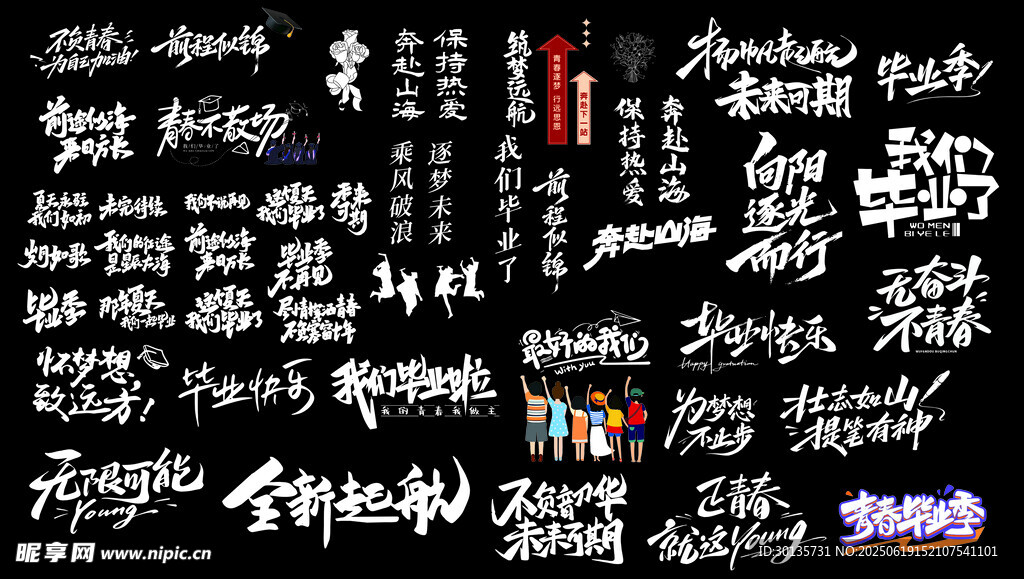 不负青春
为自己加油!
前程似锦
奔赴山海
保持热爱
筑梦远航
青春逐梦 行远思恩
奔赴下一站
保持热爱
奔赴山海
扬帆起航
未来可期
毕业季
前途似海
来日方长
青春不散场
我们毕业了
乘风破浪
逐梦未来
我们毕业了
前程似锦
奔赴山海
向阳
逐光
而行
我们
毕业了
WO MEN
BI YE LE
夏天永驻
我们如初
未完待续
我们不说再见
这夏天
我们毕业了
未来
可期
岁月如歌
我们的征途
是星辰大海
前途似海
来日方长
毕业季
不再见
毕业季
那年夏天
我们一起毕业
这夏天
我们毕业了
尽情挥洒青春
不负寒窗十年
无奋斗
不青春
WUFENDOU BUQINGCHUN
怀梦想
致远方!
毕业快乐
我们毕业啦
我的青春我做主
最好的我们
With you
毕业快乐
Happy graduation
为梦想
不止步
壮志如山
提笔有神
无限可能
Young
全新起航
不负韶华
未来可期
正青春
就这Young
青春毕业季
昵享网 www.nipic.cn
ID:30135731 NO:20250619152107541101